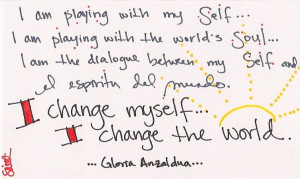 I am playing with my Self...
I am playing with the world's Soul...
I am the dialogue between my Self and
el espiritu del mundo.
I change myself...
I change the world..
... Gloria Anzaldua...